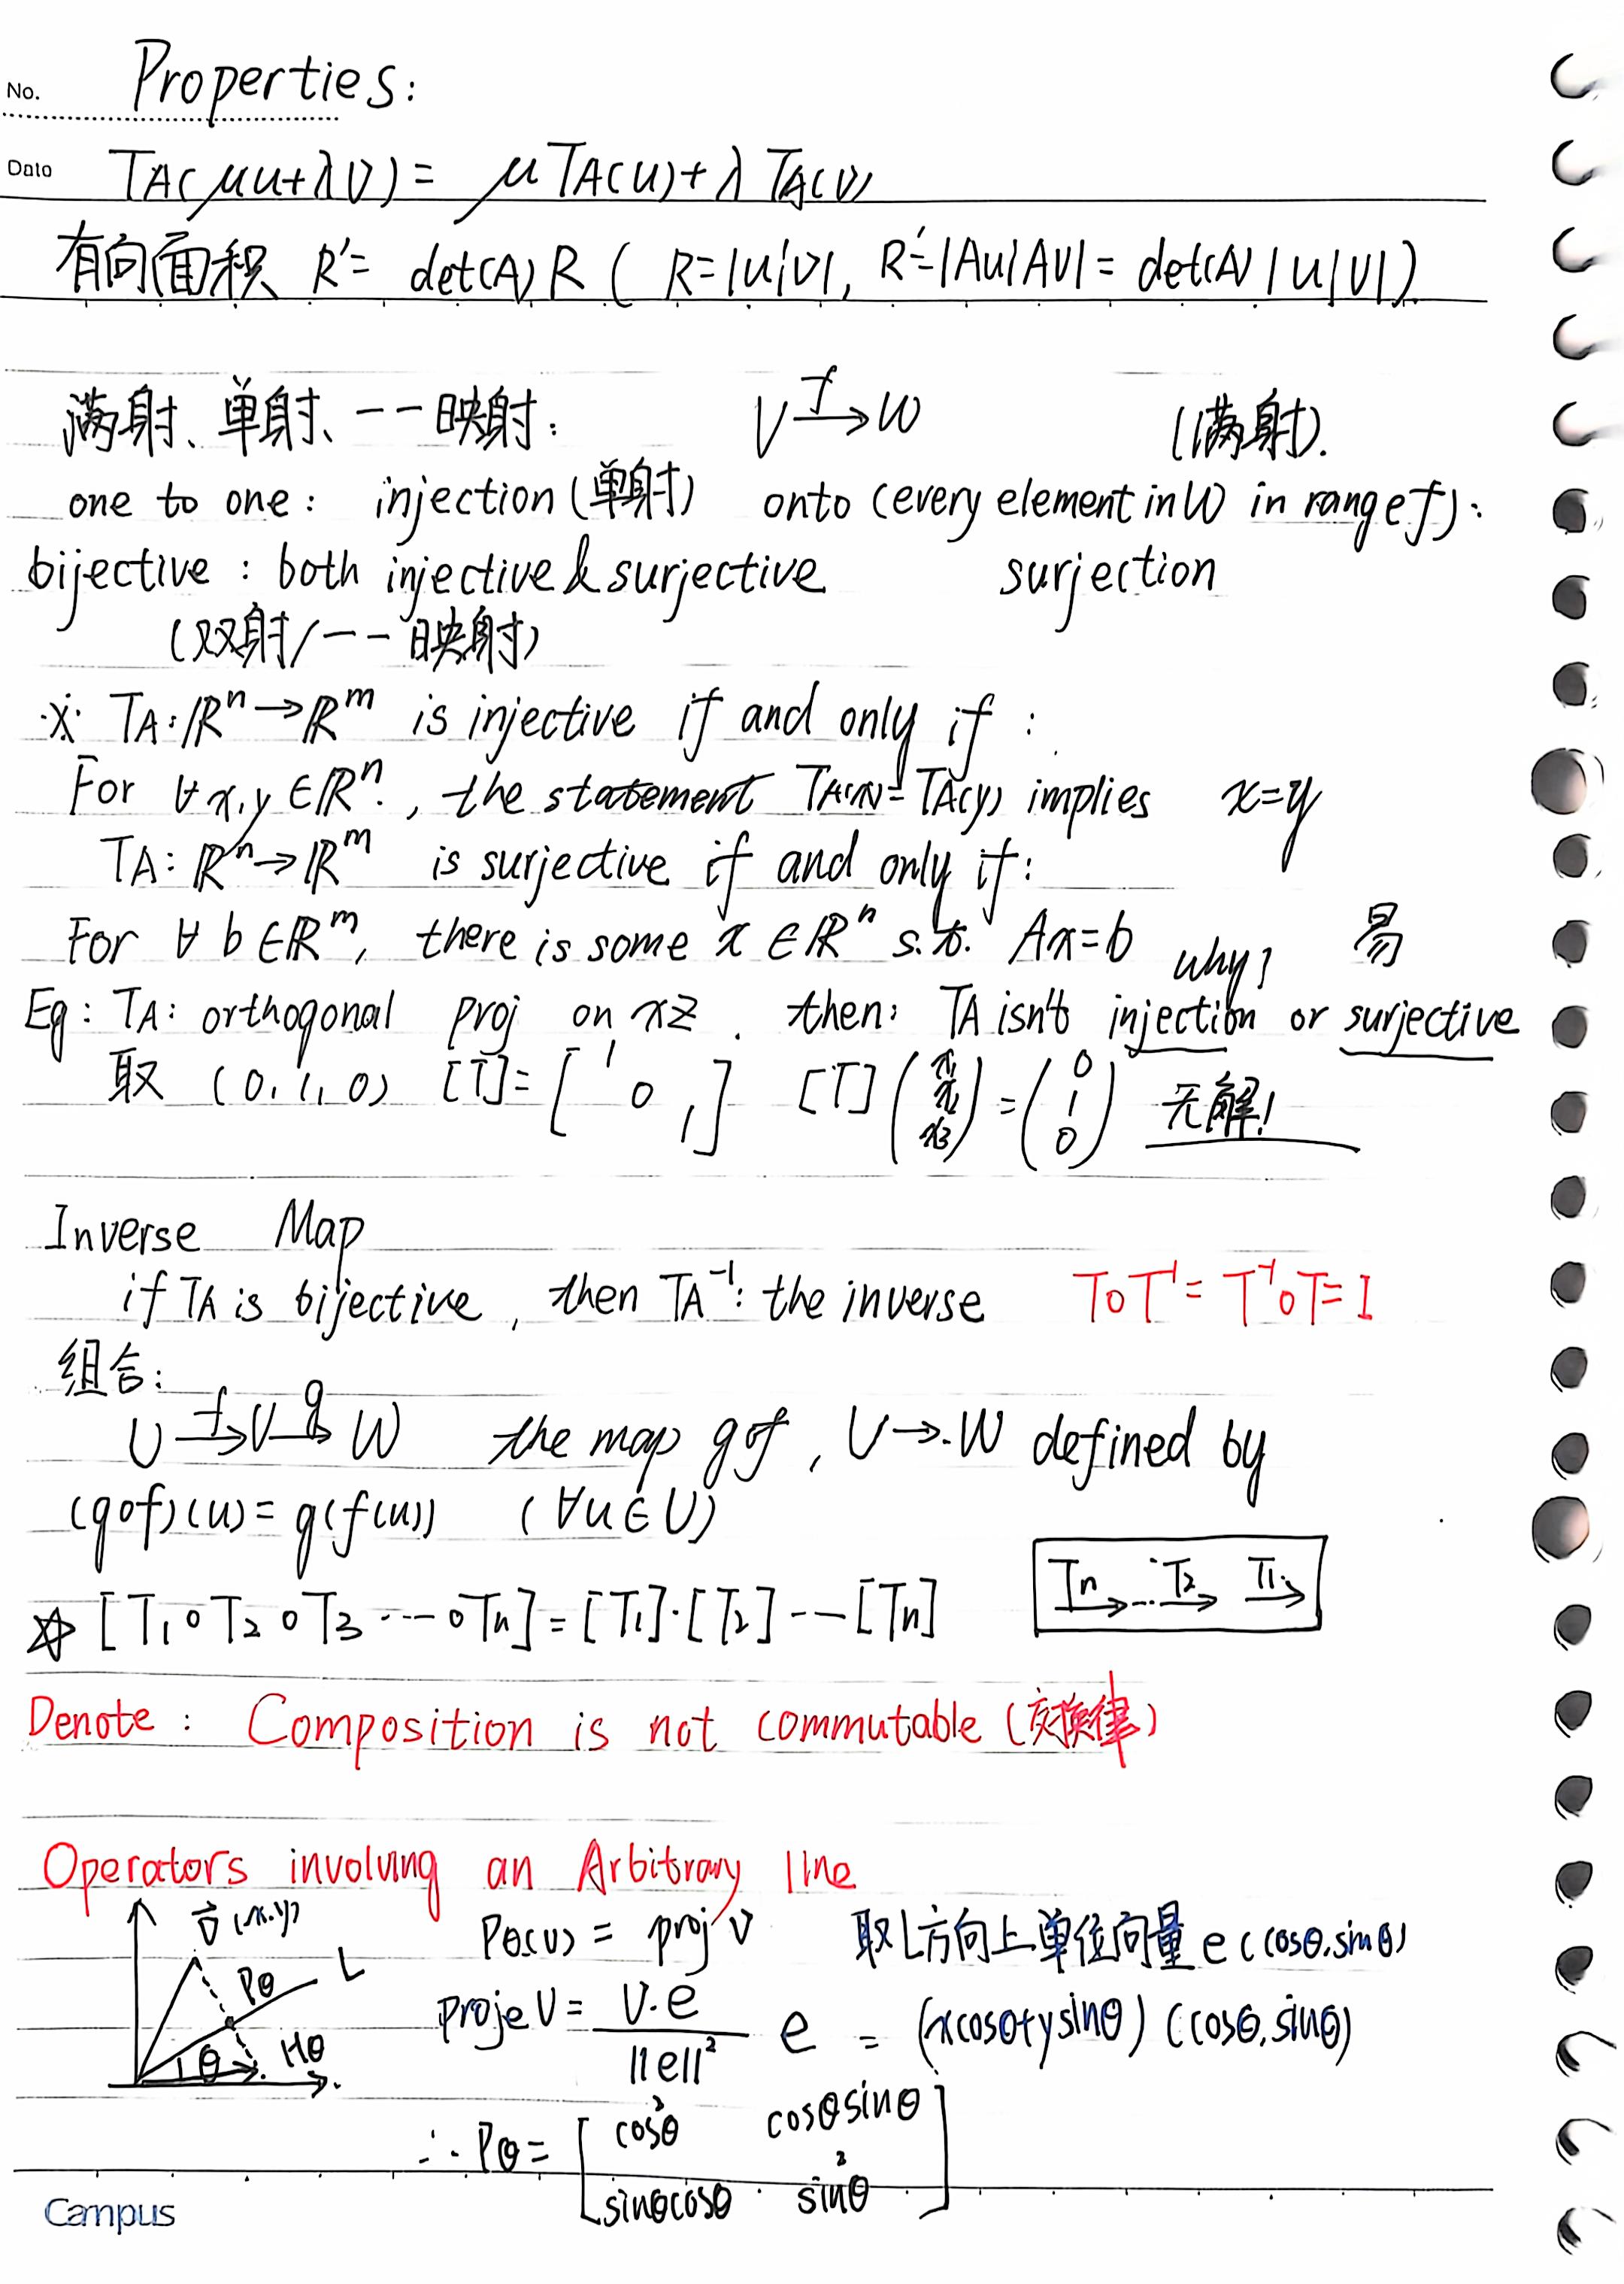 No.
Properties:
Date
TA(μu+λv) = μTA(u)+λTA(v)
有向面积 R'= det(A)R ( R=|u|v|, R'=|Au|Av| = det(A)|u|v|)
满射、单射、一一映射: V f→ W (满射).
one to one: injection (单射) onto (every element in W in range f):
bijective : both injective & surjective surjection
(双射/一一映射)
※ TA: ℝⁿ→ℝᵐ is injective if and only if :
For ∀x,y∈ℝⁿ., the statement TA(x)=TA(y) implies x=y
TA: ℝⁿ→ℝᵐ is surjective if and only if:
For ∀ b∈ℝᵐ, there is some x∈ℝⁿ s.t. Ax=b why? 易
Eg: TA: orthogonal proj on xz. then: TA isn't injection or surjective
取 (0,1,0) [T]= [1 0 1] [T] (x₁ x₂ x₃) = (0 1 0) 无解!
Inverse Map
if TA is bijective, then TA⁻¹: the inverse T∘T⁻¹= T⁻¹∘T=I
组合:
U f→ V g→ W the map g∘f, U→W defined by
(g∘f)(u)= g(f(u)) (∀u∈U)
☆ [T₁∘T₂∘T₃ ⋯ ∘Tn] = [T₁]·[T₂]⋯[Tn] Tn→ ⋯ T₂→ T₁→
Denote : Composition is not commutable (交换律)
Operators involving an Arbitrary line
v⃗(x,y) Pθ L θ Hθ
Pθ(v) = proj v 取L方向上单位向量 e (cosθ,sinθ)
proje v = v·e/||e||² e = (xcosθ+ysinθ) (cosθ,sinθ)
∴ Pθ = [cos²θ cosθsinθ
sinθcosθ sin²θ]
Campus